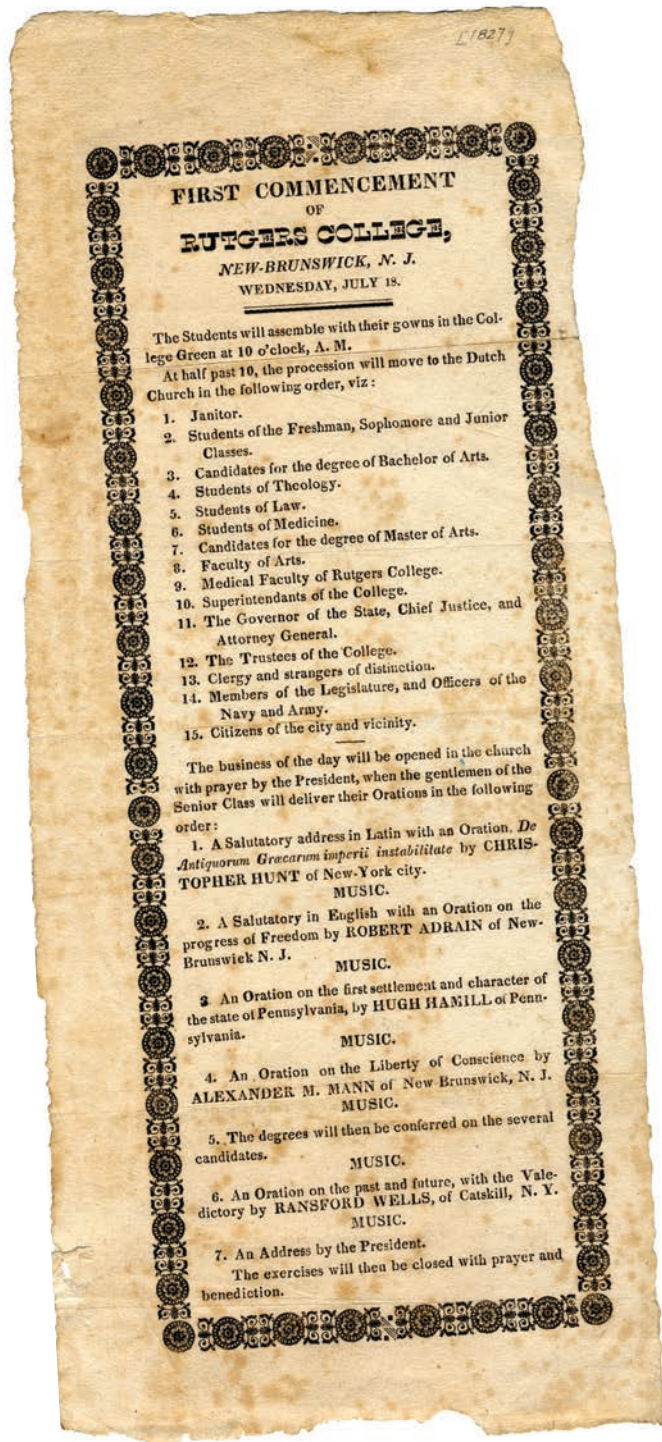 [1827]
FIRST COMMENCEMENT
OF
RUTGERS COLLEGE,
NEW-BRUNSWICK, N. J.
WEDNESDAY, JULY 18.
The Students will assemble with their gowns in the Col-
lege Green at 10 o'clock, A. M.
At half past 10, the procession will move to the Dutch
Church in the following order, viz :
1. Janitor.
2. Students of the Freshman, Sophomore and Junior
Classes.
3. Candidates for the degree of Bachelor of Arts.
4. Students of Theology.
5. Students of Law.
6. Students of Medicine.
7. Candidates for the degree of Master of Arts.
8. Faculty of Arts.
9. Medical Faculty of Rutgers College.
10. Superintendants of the College.
11. The Governor of the State, Chief Justice, and
Attorney General.
12. The Trustees of the College.
13. Clergy and strangers of distinction.
14. Members of the Legislature, and Officers of the
Navy and Army.
15. Citizens of the city and vicinity.
The business of the day will be opened in the church
with prayer by the President, when the gentlemen of the
Senior Class will deliver their Orations in the following
order :
1. A Salutatory address in Latin with an Oration. De
Antiquorum Græcarum imperii instabilitate by CHRIS-
TOPHER HUNT of New-York city.
MUSIC.
2. A Salutatory in English with an Oration on the
progress of Freedom by ROBERT ADRAIN of New-
Brunswick N. J.
MUSIC.
3 An Oration on the first settlement and character of
the state of Pennsylvania, by HUGH HAMILL of Penn-
sylvania.
MUSIC.
4. An Oration on the Liberty of Conscience by
ALEXANDER M. MANN of New Brunswick, N. J.
MUSIC.
5. The degrees will then be conferred on the several
candidates.
MUSIC.
6. An Oration on the past and future, with the Vale-
dictory by RANSFORD WELLS, of Catskill, N. Y.
MUSIC.
7. An Address by the President.
The exercises will then be closed with prayer and
benediction.